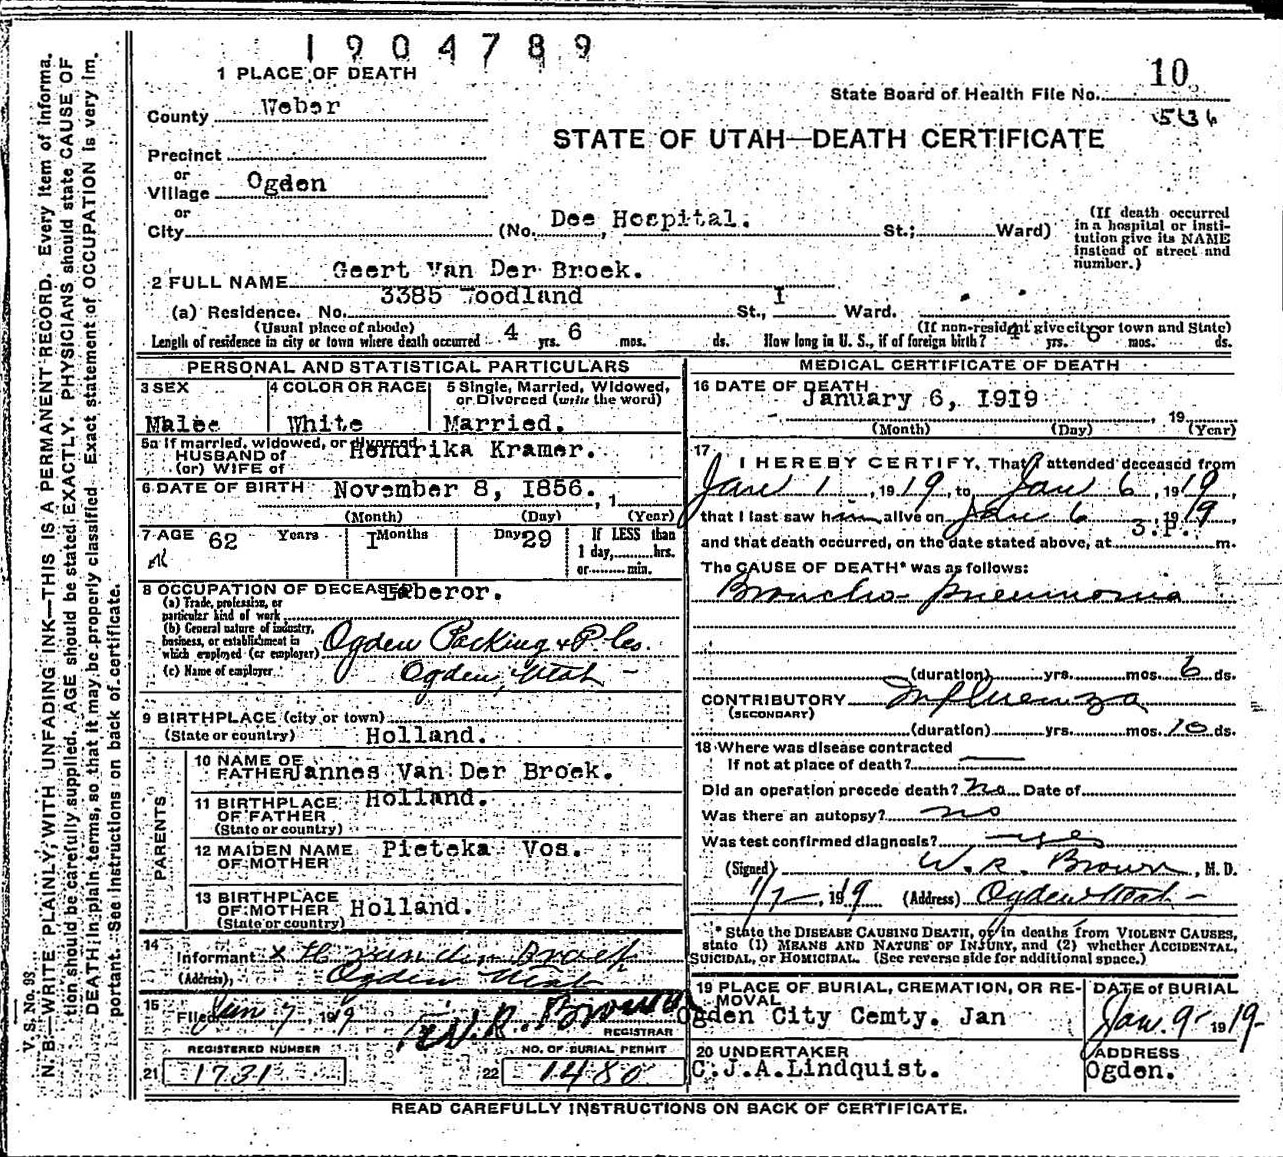 1904789
1 PLACE OF DEATH
County Weber
State Board of Health File No. 10
536
STATE OF UTAH—DEATH CERTIFICATE
Precinct
or
Village Ogden
or
City (No. Dee Hospital. St.; Ward)
(If death occurred in a hospital or insti- tution give its NAME instead of street and number.)
2 FULL NAME Geert Van Der Broek.
(a) Residence. No. 3385 Woodland St., I Ward.
(Usual place of abode) (If non-resident give city or town and State)
Length of residence in city or town where death occurred 4 yrs. 6 mos. ds. How long in U. S., if of foreign birth? 4 yrs. 6 mos. ds.
PERSONAL AND STATISTICAL PARTICULARS
3 SEX Malee
4 COLOR OR RACE White
5 Single, Married, Widowed, or Divorced (write the word) Married.
5a If married, widowed, or divorced
HUSBAND of Hendrika Kramer.
(or) WIFE of
6 DATE OF BIRTH November 8, I856. , 1
(Month) (Day) (Year)
7 AGE 62 Years I Months Days 29
If LESS than
1 day, hrs.
or min.
8 OCCUPATION OF DECEASED Laberor.
(a) Trade, profession, or
particular kind of work
(b) General nature of industry,
business, or establishment in
which employed (or employer) Ogden Packing & P. Co.
(c) Name of employer Ogden, Utah
9 BIRTHPLACE (city or town)
(State or country) Holland.
PARENTS
10 NAME OF
FATHER Jannes Van Der Broek.
11 BIRTHPLACE Holland.
OF FATHER
(State or country)
12 MAIDEN NAME Pieteka Vos.
OF MOTHER
13 BIRTHPLACE
OF MOTHER Holland.
(State or country)
14
Informant x H van den Broek
(Address), Ogden Utah
15
Filed Jan 7, 1919 W. R. Brown
REGISTRAR
REGISTERED NUMBER
21 1731
NO. OF BURIAL PERMIT
22 1480
MEDICAL CERTIFICATE OF DEATH
16 DATE OF DEATH
January 6, I9I9 19
(Month) (Day) (Year)
17
I HEREBY CERTIFY, That I attended deceased from
Jan 1, 1919, to Jan 6, 1919,
that I last saw him alive on Jan 6 1919,
and that death occurred, on the date stated above, at 3.P. m.
The CAUSE OF DEATH* was as follows:
Broncho-pneumonia
(duration) yrs. mos. 6 ds.
CONTRIBUTORY Influenza
(SECONDARY)
(duration) yrs. mos. 10 ds.
18 Where was disease contracted
If not at place of death? —
Did an operation precede death? no Date of
Was there an autopsy? no
Was test confirmed diagnosis? yes
(Signed) W. R. Brown, M. D.
1/7, 1919 (Address) Ogden Utah
* State the DISEASE CAUSING DEATH, or in deaths from VIOLENT CAUSES,
state (1) MEANS AND NATURE OF INJURY, and (2) whether ACCIDENTAL,
SUICIDAL, or HOMICIDAL. (See reverse side for additional space.)
19 PLACE OF BURIAL, CREMATION, OR RE-
MOVAL
Ogden City Cemty. Jan
DATE of BURIAL
Jan. 9- 1919-
20 UNDERTAKER
C.J.A.Lindquist.
ADDRESS
Ogden.
READ CAREFULLY INSTRUCTIONS ON BACK OF CERTIFICATE.
V. S. No. 98
N. B.—WRITE PLAINLY, WITH UNFADING INK—THIS IS A PERMANENT RECORD. Every item of informa-
tion should be carefully supplied. AGE should be stated EXACTLY. PHYSICIANS should state CAUSE OF
DEATH in plain terms, so that it may be properly classified. Exact statement of OCCUPATION is very im-
portant. See instructions on back of certificate.